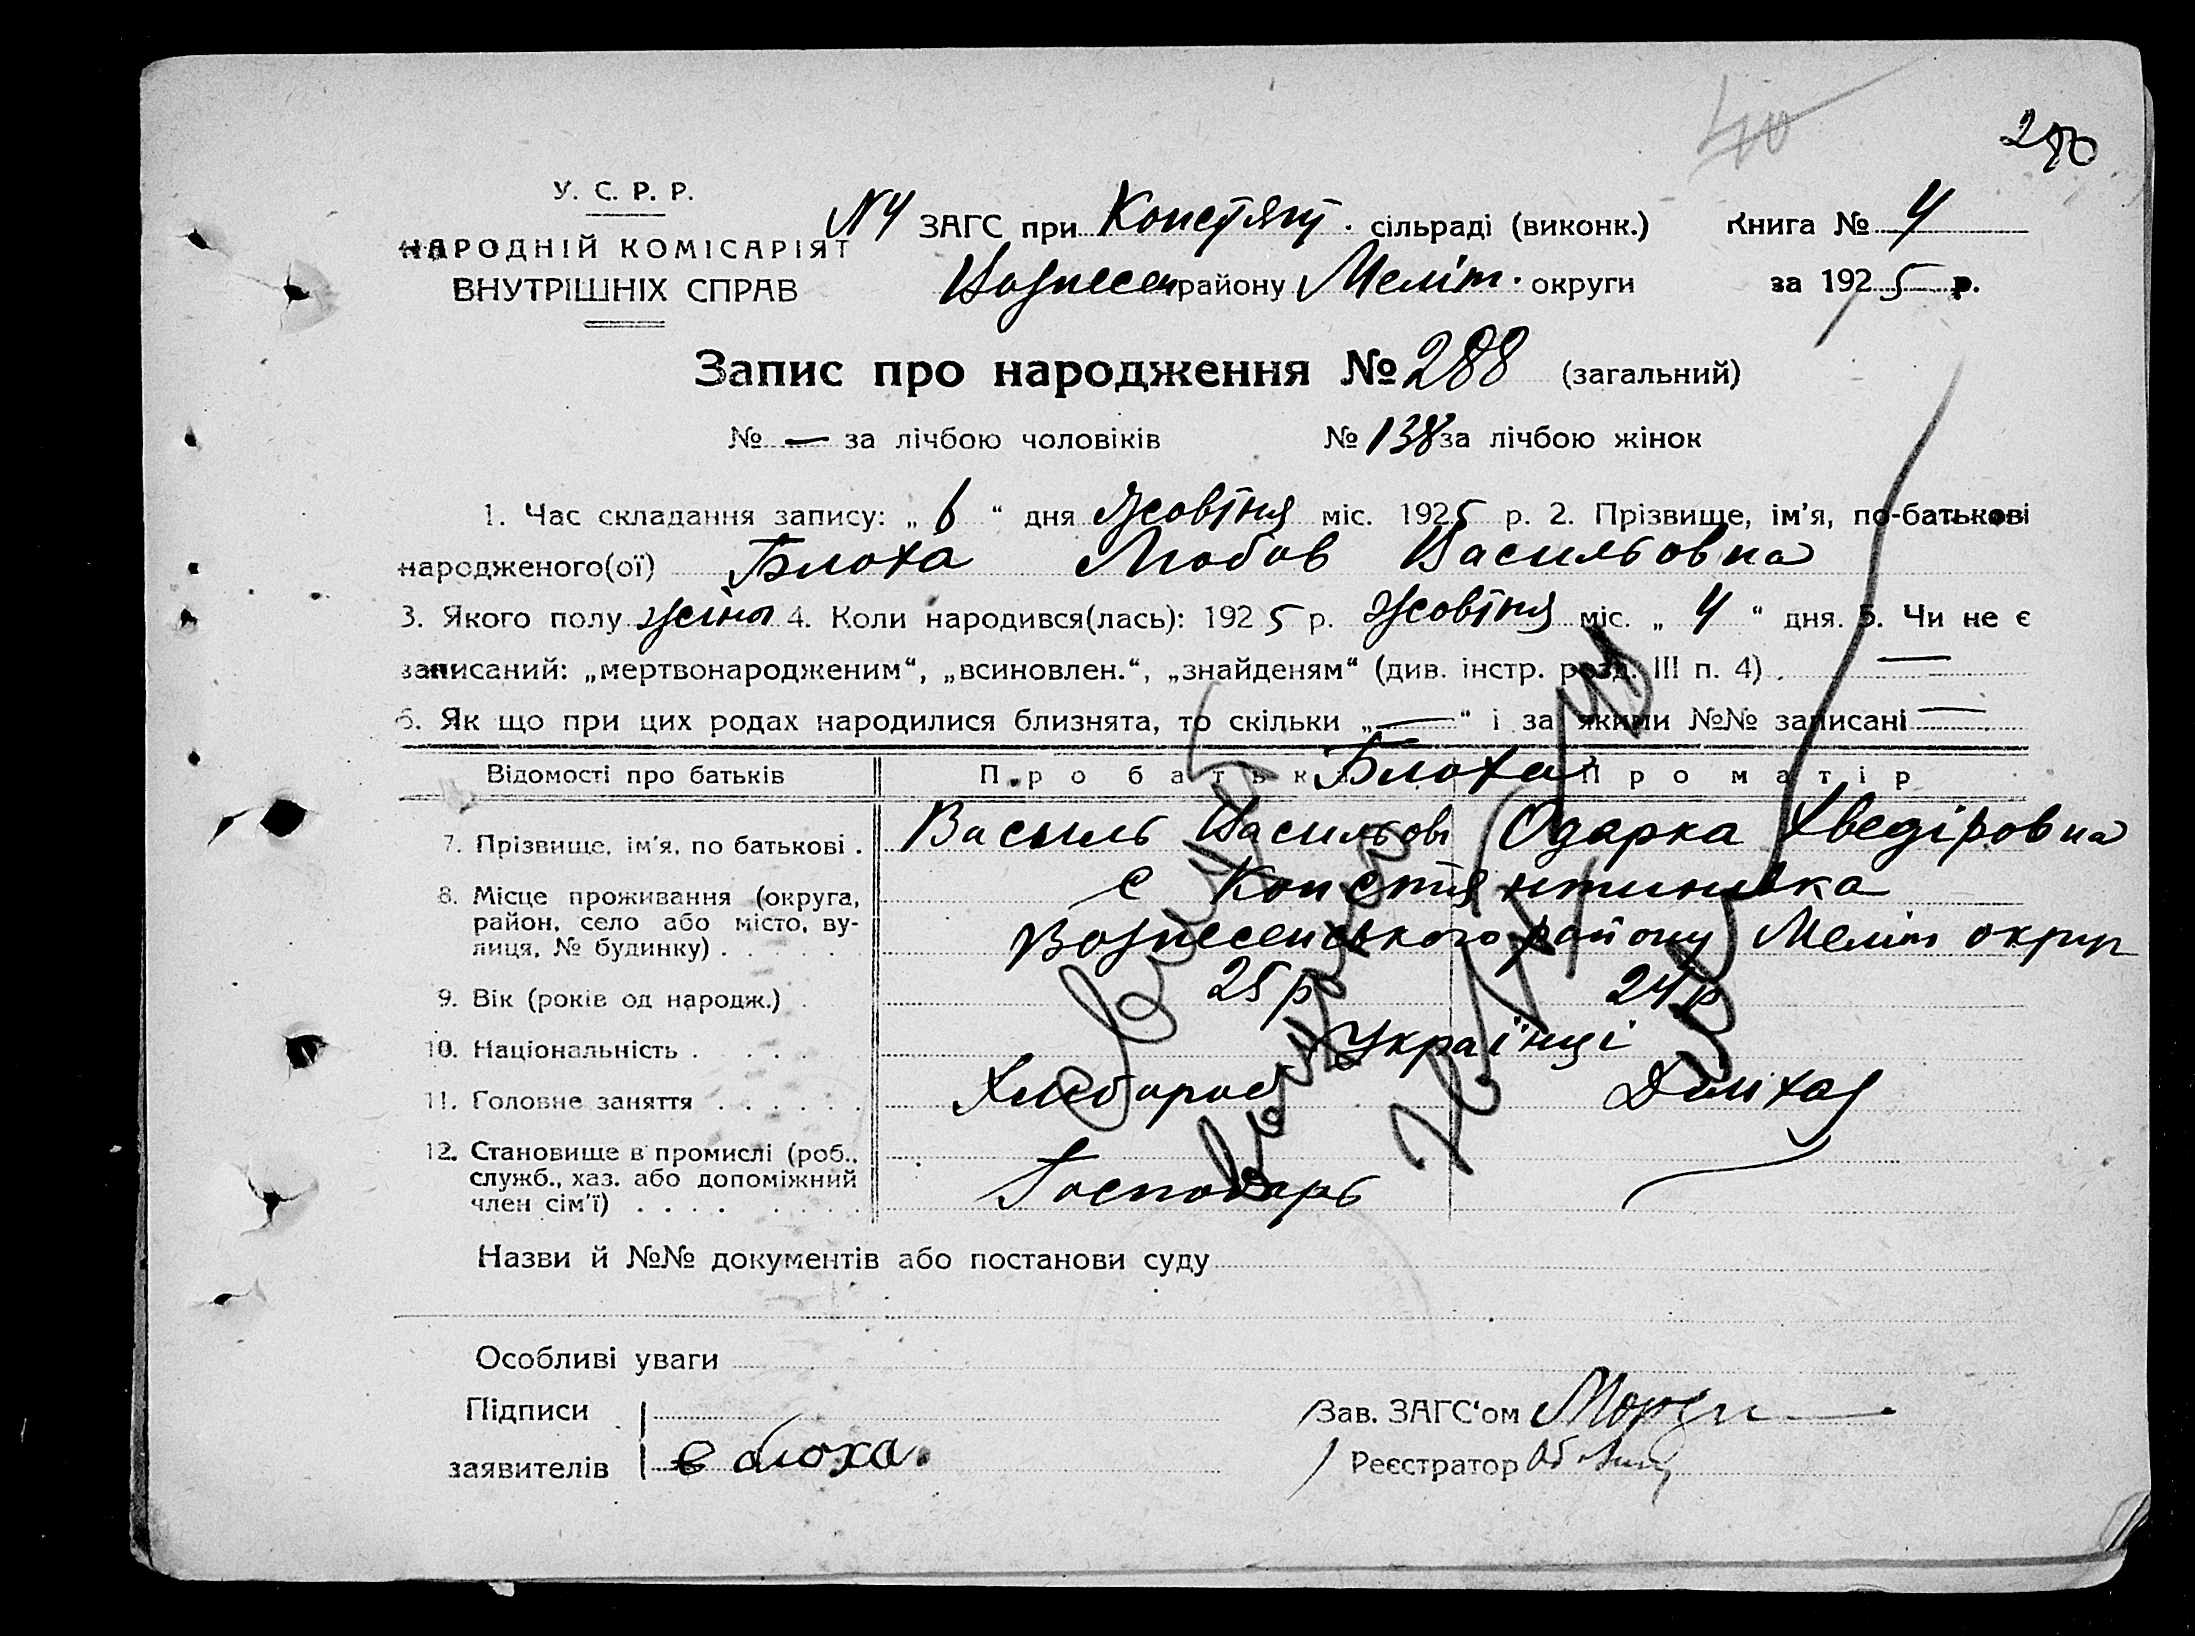 40
290
У. С. Р. Р.
НАРОДНІЙ КОМІСАРІЯТ
ВНУТРІШНІХ СПРАВ
N4 ЗАГС при Констянт. сільраді (виконк.) Книга № 4
Вознесен району Меліт. округи за 1925 р.
Запис про народження № 288 (загальний)
№ — за лічбою чоловіків № 138 за лічбою жінок
1. Час складання запису: „6“ дня Жовтня міс. 1925 р. 2. Прізвище, ім'я, по-батькові
народженого(ої) Блоха Любов Васильовна
3. Якого полу жіноч 4. Коли народився(лась): 1925 р. Жовтня міс. „4“ дня. 5. Чи не є
записаний: „мертвонародженим“, „всиновлен.“, „знайденям“ (див. інстр. розд. III п. 4) . —
6. Як що при цих родах народилися близнята, то скільки „—“ і за якими №№ записані —
Відомості про батьків Про батька Блоха Про матір
7. Прізвище, ім'я, по батькові . Василь Васильов Одарка Хведіровна
8. Місце проживання (округа, с Констянтинівка
район, село або місто, ву-
лиця, № будинку) . Вознесенського району Меліт округи
9. Вік (років од народж.) . 25 р 24 р
10. Національність . Українці
11. Головне заняття . Хлібороб Домхаз
12. Становище в промислі (роб.,
служб., хаз. або допоміжний Господарь
член сім'ї) .
Назви й №№ документів або постанови суду
Особливі уваги
Підписи
Зав. ЗАГС'ом
заявителів в блоха.
Реєстратор